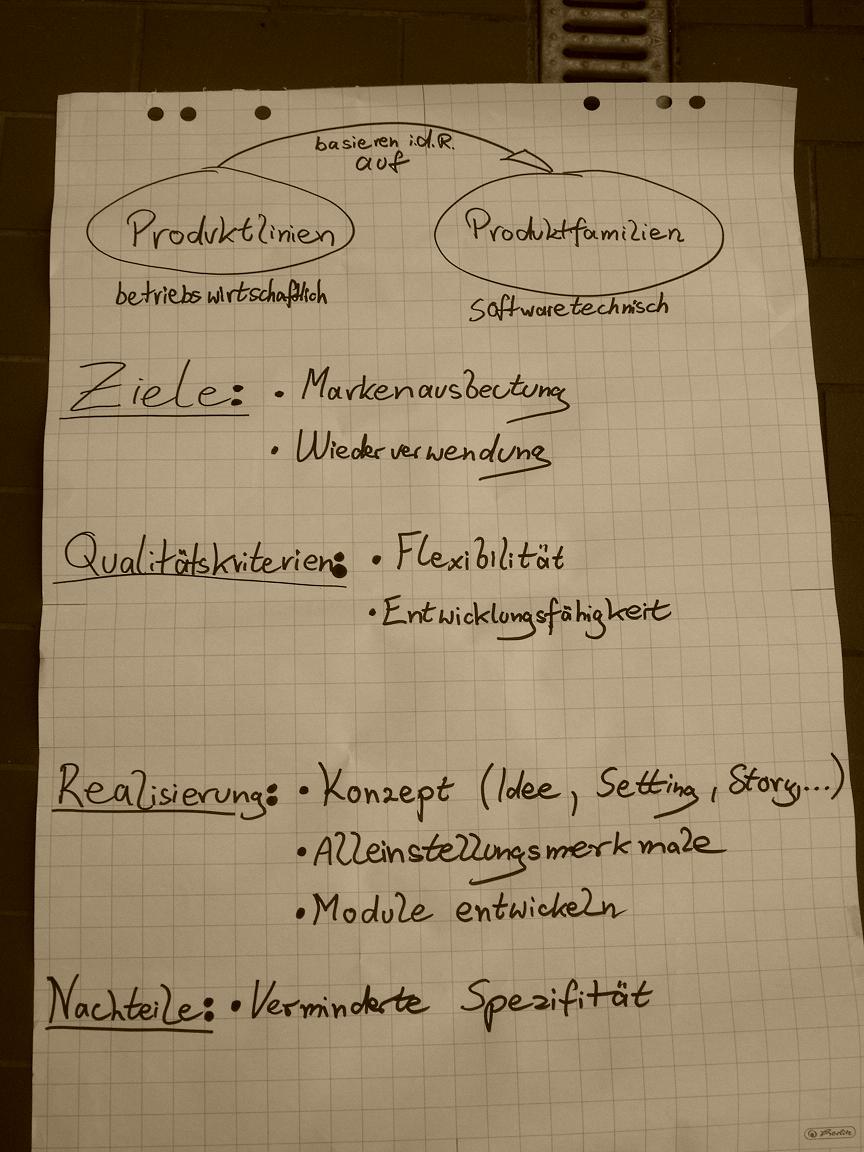 basieren i.d.R.
auf
Produktlinien
Produktfamilien
betriebswirtschaftlich
softwaretechnisch
Ziele: • Markenausbeutung
• Wiederverwendung
Qualitätskriterien: • Flexibilität
• Entwicklungsfähigkeit
Realisierung: • Konzept (Idee, Setting, Story,...)
• Alleinstellungsmerkmale
• Module entwickeln
Nachteile: • Verminderte Spezifität
Berlin